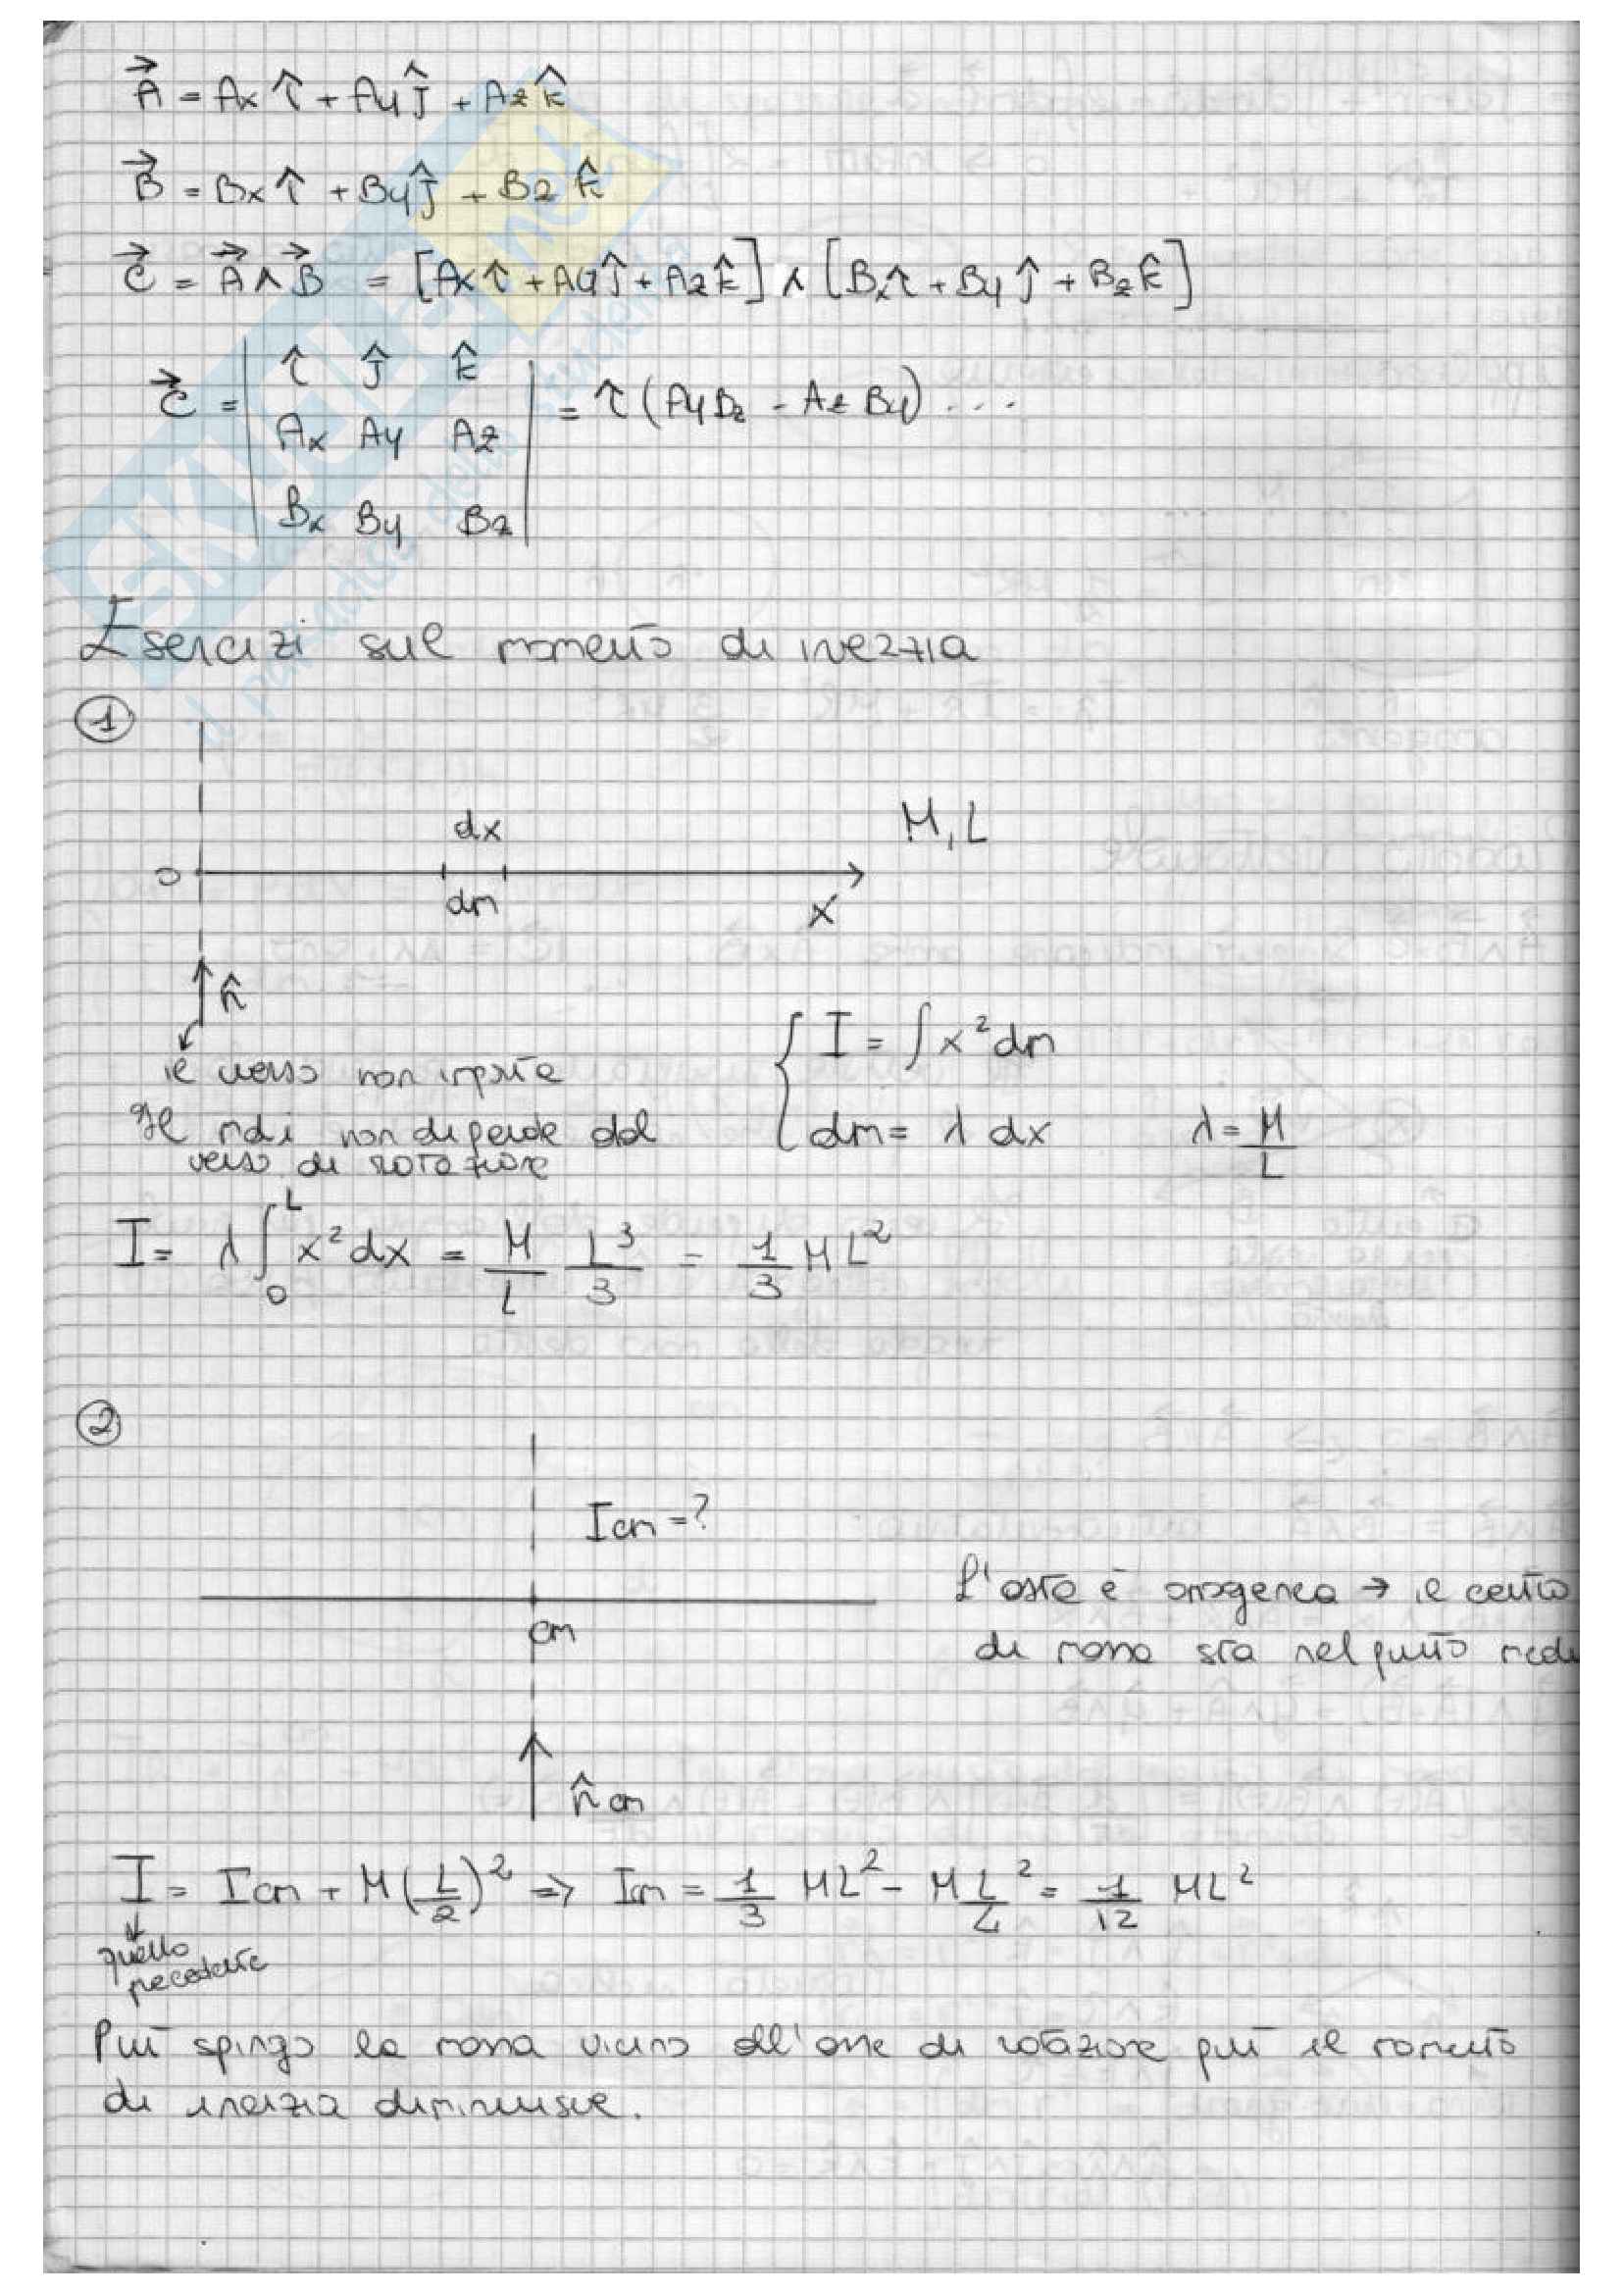 A⃗ = Ax î + Ay ĵ + Az k̂
B⃗ = Bx î + By ĵ + Bz k̂
C⃗ = A⃗ ∧ B⃗ = [Ax î + Ay ĵ + Az k̂] ∧ [Bx î + By ĵ + Bz k̂]
î ĵ k̂
C⃗ = | Ax Ay Az | = î (Ay Bz - Az By) ...
Bx By Bz
SKUOLA.net
il paradiso dello studente
Esercizi sul momento di inerzia
1
dx
M, L
O
dm
x
n̂
il verso non importa
Il mdi non dipende dal
verso di rotazione
I = ∫ x² dm
dm = λ dx λ = M/L
I = λ ∫₀ᴸ x² dx = M/L L³/3 = 1/3 ML²
2
Icm = ?
cm
L'asta è omogenea → il centro
di massa sta nel punto medi
n̂ cm
I = Icm + M(L/2)² ⇒ Icm = 1/3 ML² - M L²/4 = 1/12 ML²
quello
precedente
Più spingo la massa vicino all'asse di rotazione più il momento
di inerzia diminuisce.